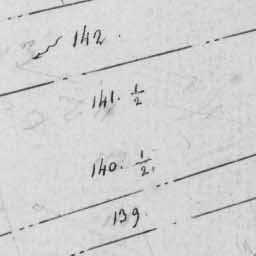 142.
141. 1/2
140. 1/2.
139.